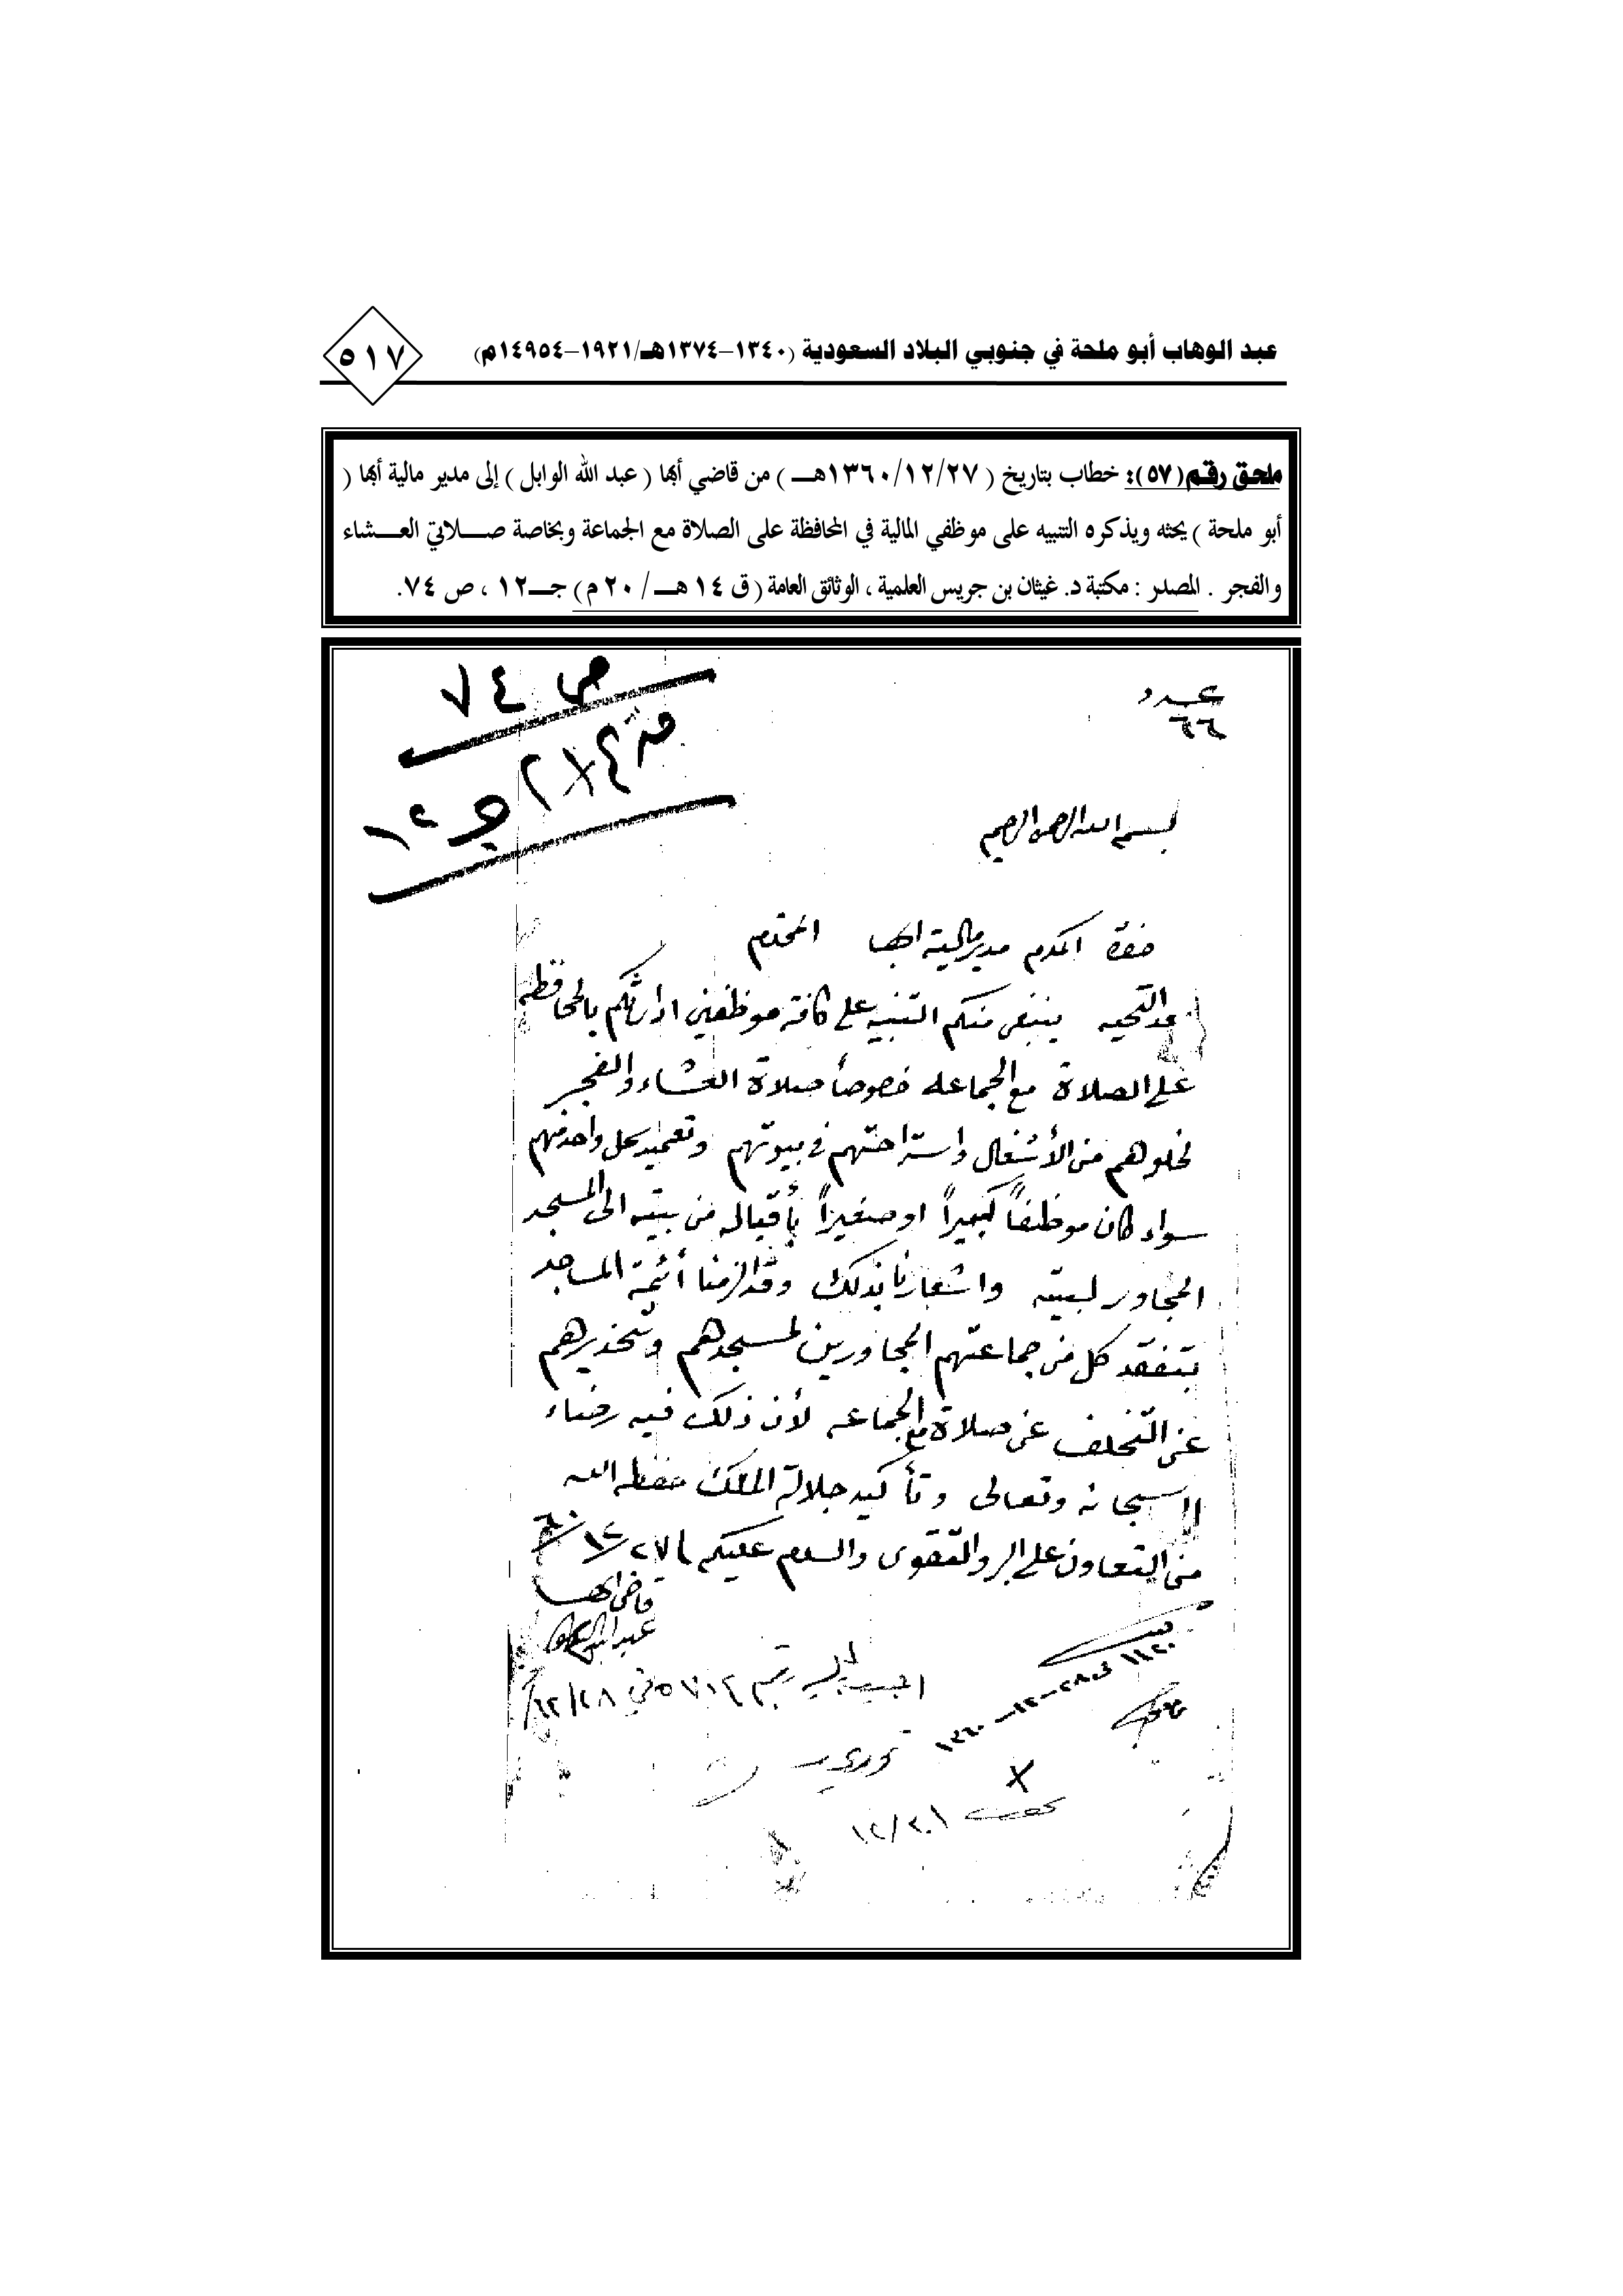 عبد الوهاب أبو ملحة في جنوبي البلاد السعودية (١٣٤٠-١٣٧٤هـ/١٩٢١-١٤٩٥٤م)
٥١٧
ملحق رقم(٥٧): خطاب بتاريخ ( ١٣٦٠/١٢/٢٧هـــ ) من قاضي أبها ( عبد الله الوابل ) إلى مدير مالية أبها (
أبو ملحة ) يحثه ويذكره التنبيه على موظفي المالية في المحافظة على الصلاة مع الجماعة وبخاصة صـــلاتي العـــشاء
والفجر . المصدر : مكتبة د. غيثان بن جريس العلمية ، الوثائق العامة ( ق ١٤ هـــ / ٢٠ م ) جـــ١٢ ، ص ٧٤.
ص ٧٤
جـ ١٢
عدد
٦٦
بسم الله الرحمن الرحيم
حضرة المكرم مدير مالية ابها المحترم
بعد التحيه ينبغي منكم التنبيه على كافة موظفين ادارتكم بالمحافظه
على الصلاة مع الجماعه خصوصاً صلاة العشاء والفجر
لخلوهم من الأشغال واستراحتهم في بيوتهم وتعميد كل واحد منهم
سواء كان موظفاً كبيراً او صغيراً بأقباله من بيته الى المسجد
المجاور لبيته واشعارنا بذلك وقد الزمنا أئمة المساجد
بتفقد كل من جماعتهم المجاورين لمسجدهم وتحذيرهم
عن التخلف عن صلاة مع الجماعه لأن ذلك فيه رضاء
الله سبحانه وتعالى وتأكيد جلالة الملك حفظه الله
من التعاون على البر والتقوى والسلام عليكم ٢٧/١٢/٦٠
قاضي ابها
عبد الله الوابل
١١٢٠ في ٢٨-١٢-١٣٦٠
رقم ٥٧١٢ في ٢٨/١٢